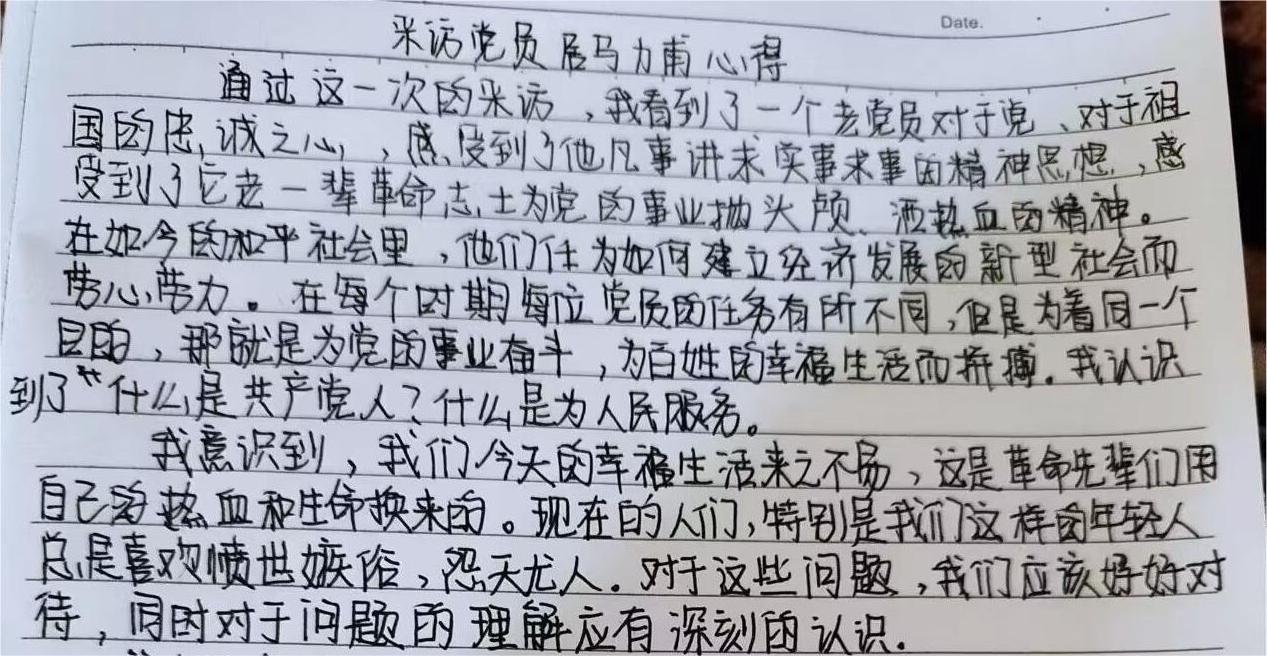 Date.
采访党员居马力甫心得
通过这一次的采访，我看到了一个老党员对于党、对于祖
国的忠诚之心，感受到了他凡事讲求实事求事的精神思想，感
受到了它老一辈革命志士为党的事业抛头颅、洒热血的精神。
在如今的和平社会里，他们任为如何建立经济发展的新型社会而
劳心劳力。在每个时期每位党员的任务有所不同，但是为着同一个
目的，那就是为党的事业奋斗，为百姓的幸福生活而拼搏。我认识
到了“什么是共产党人？什么是为人民服务。
我意识到，我们今天的幸福生活来之不易，这是革命先辈们用
自己的热血和生命换来的。现在的人们，特别是我们这样的年轻人
总是喜欢愤世嫉俗，怨天尤人。对于这些问题，我们应该好好对
待，同时对于问题的理解应有深刻的认识。